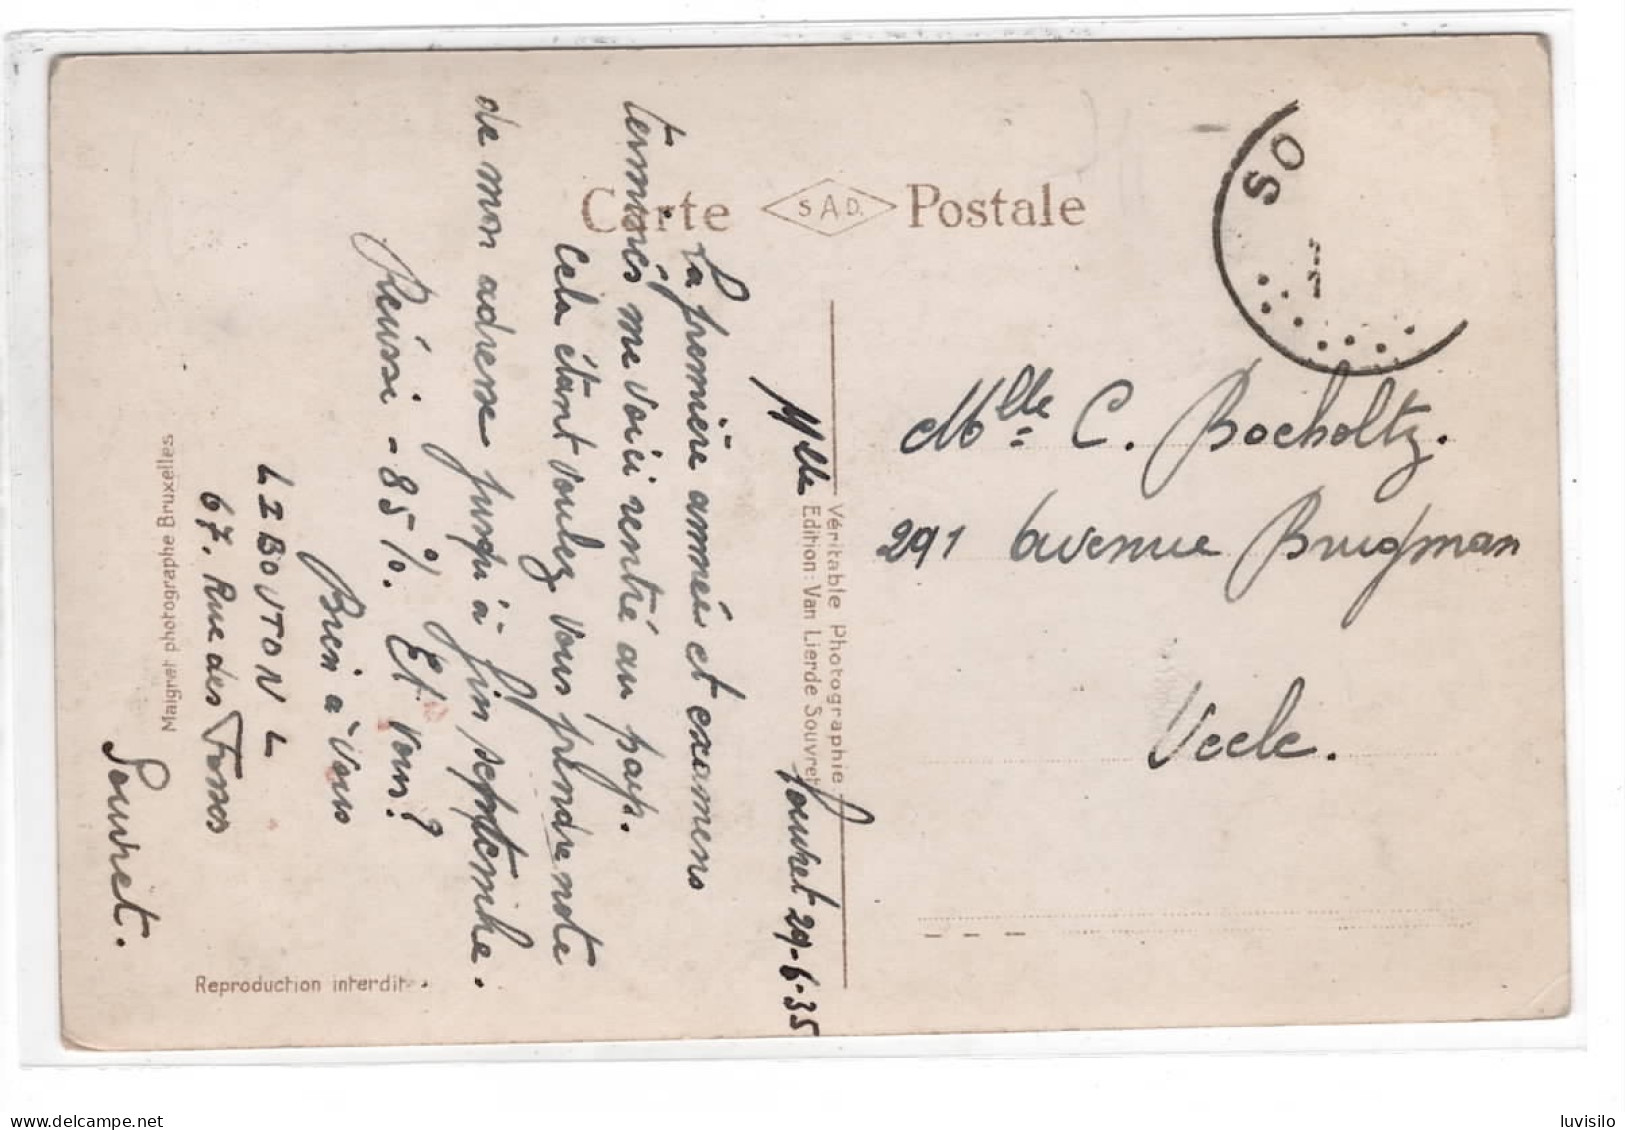 Carte SAD. Postale
SO
Mlle C. Bocholtz.
291 Avenue Brugman
Uccle.
Véritable Photographie
Edition: Van Lierde Souvret
Mlle Souvret 29-6-35
La première année et examens
terminés me voici rentré au pays.
Cela étant voulez vous prendre note
de mon adresse jusqu'à fin septembre.
Réussi - 85%. Et vous?
Bien à vous
LIBOUTON L
67. Rue des Fosses
Souvret.
Maigret photographe Bruxelles
Reproduction interdit
delcampe.net
luvisilo